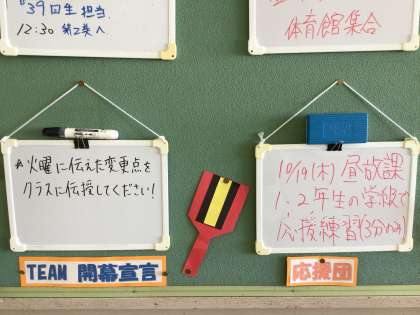 39回生 担当
12:30 第2選へ
体育館集合
*火曜に伝えた変更点を
クラスに伝授してください!
10/19(木) 昼放課
1、2年生の学級で
応援練習(3分のみ)
TEAM 開幕宣言
応援団